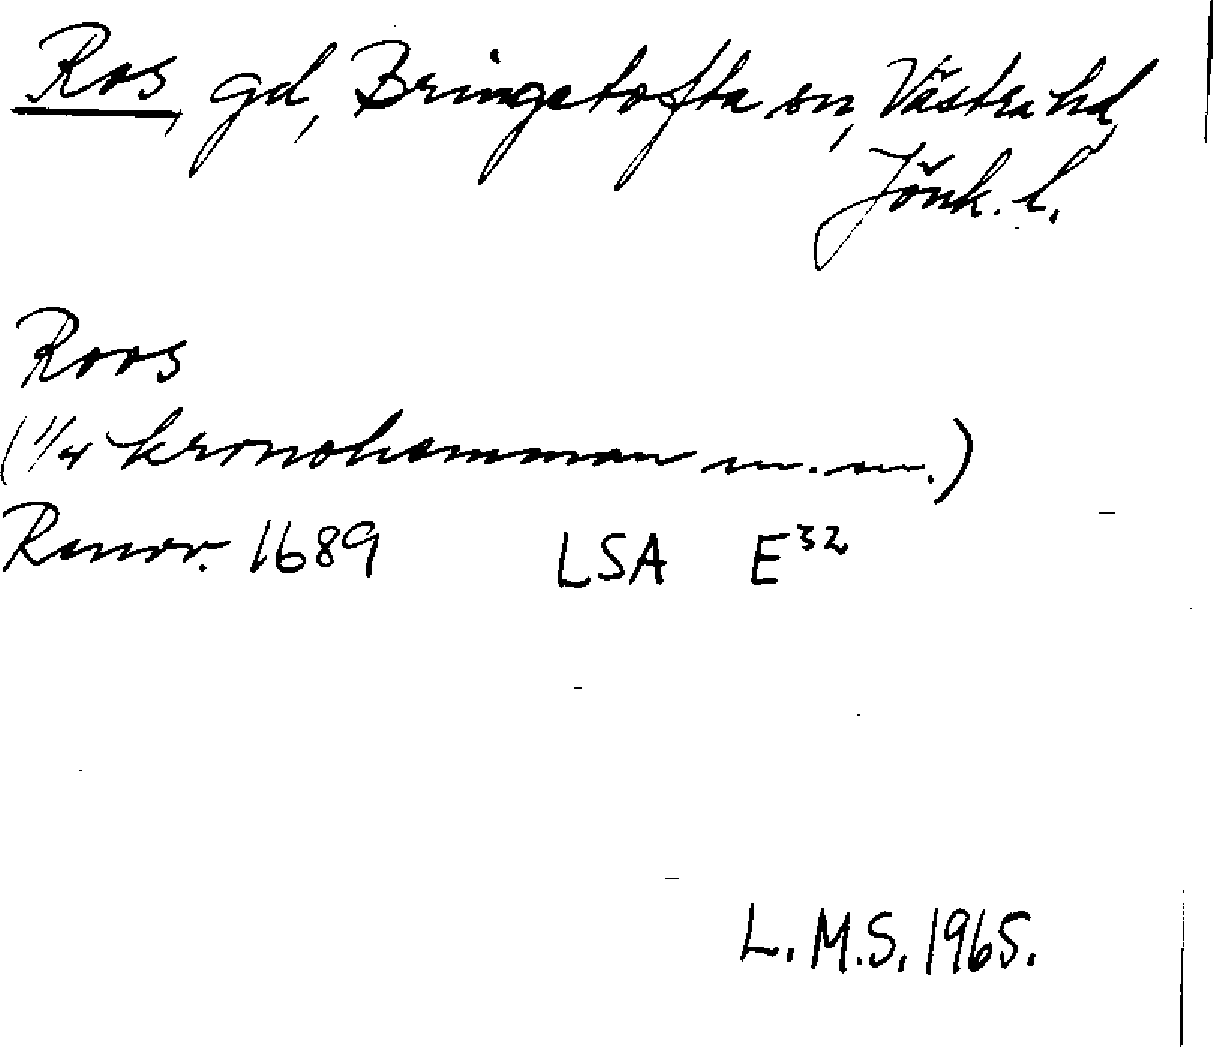 Ros, gd, Bringetofta sn, Västra hd,
Jönk. l.
Roos
(1/4 kronohemman m. m.)
Renov. 1689 LSA E32
L. M. S. 1965.